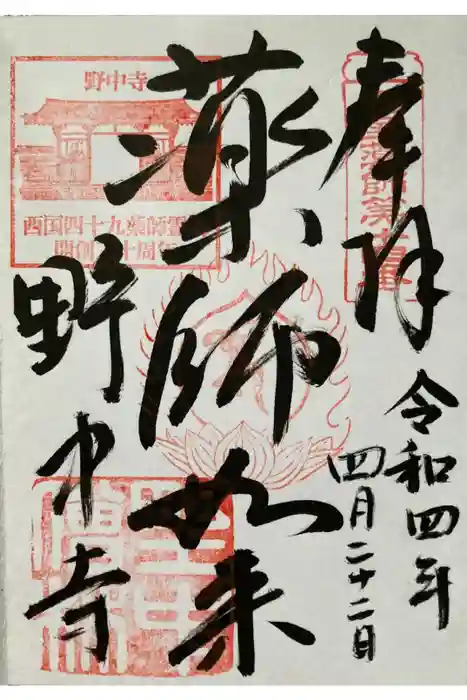 奉拝
令和四年
四月二十二日
薬師如来
野中寺
野中寺
西国四十九薬師霊
開創 十周年